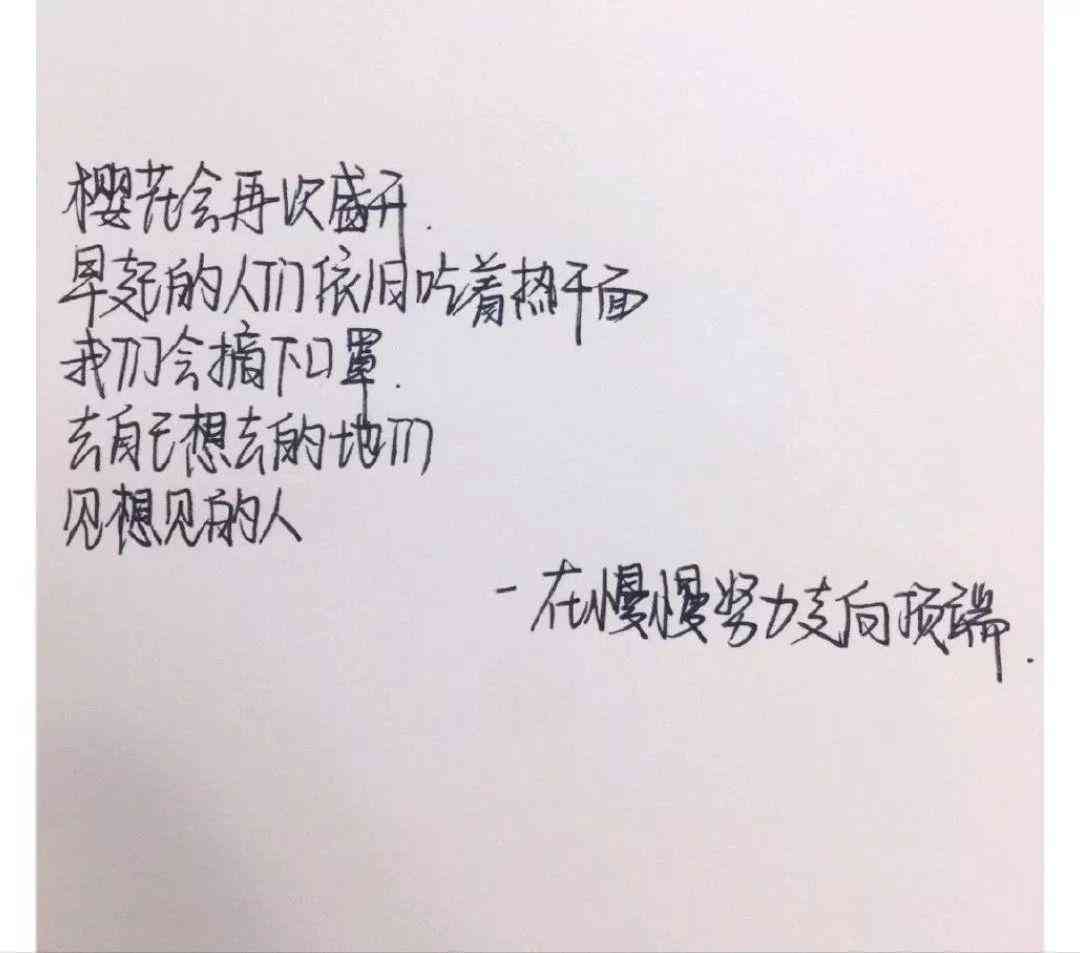 樱花会再次盛开.
早起的人们依旧吃着热干面
我们会摘下口罩.
去自己想去的地们
见想见的人
-在慢慢努力走向顶端.